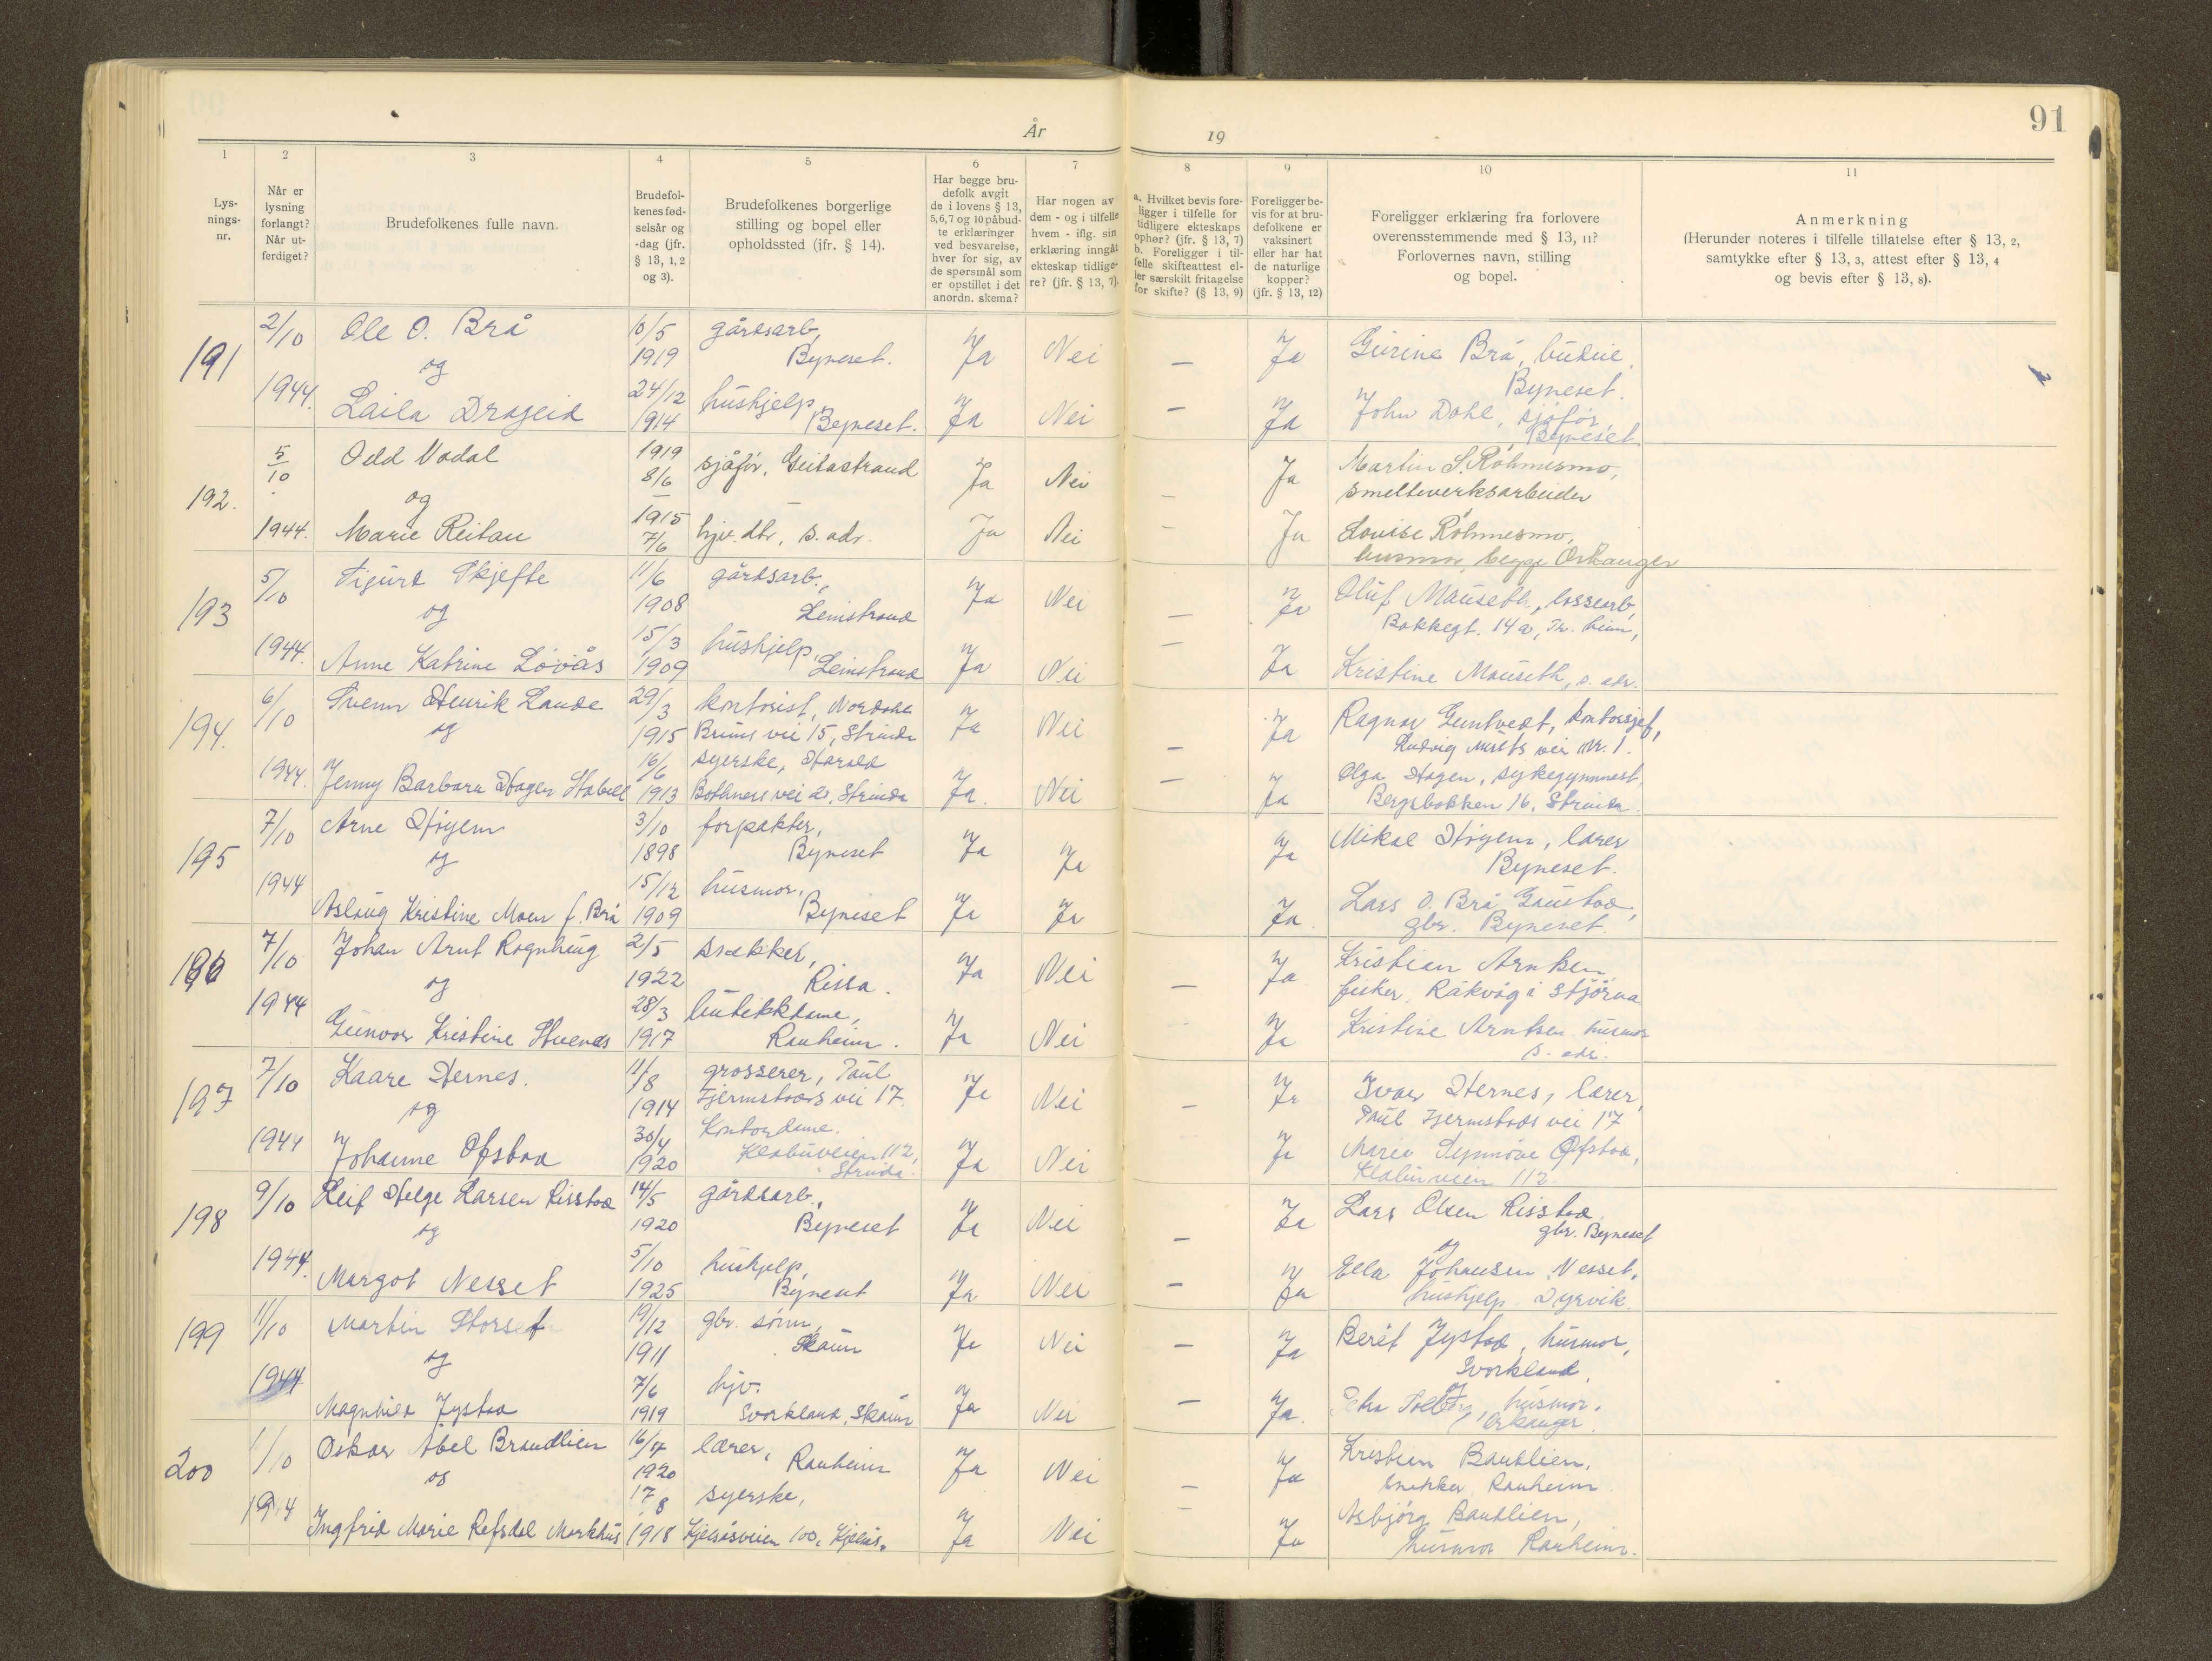 91
År
19
1
2
3
4
5
6
7
8
9
10
11
Lys-
nings-
nr.
Når er
lysning
forlangt?
Når ut-
ferdiget?
Brudefolkenes fulle navn.
Brudefol-
kenes fød-
selsår og
-dag (jfr.
§ 13, 1, 2
og 3).
Brudefolkenes borgerlige
stilling og bopel eller
opholdssted (ifr. § 14).
Har begge bru-
defolk avgit
de i lovens § 13,
5,6,7 og 10 påbud-
te erklæringer
ved besvarelse,
hver for sig, av
de spørsmål som
er opstillet i det
anordn. skema?
Har nogen av
dem - og i tilfelle
hvem - iflg. sin
erklæring inngått
ekteskap tidlige-
re? (jfr. § 13, 7).
a. Hvilket bevis fore-
ligger i tilfelle for
tidligere ekteskaps
ophør? (jfr. § 13, 7)
b. Foreligger i til-
felle skifteattest el-
ler særskilt fritagelse
for skifte? (§ 13, 9)
Foreligger be-
vis for at bru-
defolkene er
vaksinert
eller har hat
de naturlige
kopper?
(jfr. § 13, 12)
Foreligger erklæring fra forlovere
overensstemmende med § 13, 11?
Forlovernes navn, stilling
og bopel.
Anmerkning
(Herunder noteres i tilfelle tillatelse efter § 13, 2,
samtykke efter § 13, 3, attest efter § 13, 4
og bevis efter § 13, 8).
191
2/10 Ole O. Brå 10/5 gårdsarb,
og 1919 Byneset. Ja Nei — Ja Gurine Brå, budeie,
Byneset.
1944. Laila Drageid 24/12 hushjelp,
1914 Byneset. Ja Nei — Ja John Dahl, sjåfør,
Byneset.
192.
5/10 Odd Vadal 1919
8/6 sjåfør, Geitastrand Ja Nei — Ja Martin S. Röhmesmo,
og smelteverksarbeider
1944. Marie Reitan 1915
7/6 hjv. dtr, s. adr. Ja Nei — Ja Lovise Röhmesmo,
husmor, begge Orkanger
193
5/10 Sigurd Skjefte 11/6 gårdsarb.,
og 1908 Leinstrand Ja Nei — Ja Oluf Mauseth, lossearb,
Bakkegt. 14 a, Tr. heim,
1944. Anne Katrine Løvås 15/3 hushjelp,
1909 Leinstrand Ja Nei — Ja Kristine Mauseth, s. adr.
194.
6/10 Svenn Henrik Lande 29/3 kontorist, Nordahl
og 1915 Bruns vei 15, Strinda Ja Nei — Ja Ragnar Guntvedt, kontorsjef,
Ludvig vei nr. 1.
1944. Jenny Barbara Hagen Stabell 16/6 syerske, Harald
1913 Bothners vei 21, Strinda Ja. Nei — Ja Olga Hagen, sykegymnast,
Bergsbakken 16, Strinda.
195
7/10 Arne Høyem 3/10 forpakter,
og 1898 Byneset Ja Ja Ja Mikal Høyem, lærer
Byneset.
1944 Aslaug Kristine Moen f. Brå 15/12 husmor,
1909 Byneset Ja Ja Ja Lars O. Brå, Gaustad,
gbr. Byneset.
196
7/10 Johan Arnt Rognhaug 2/5 snekker,
og 1922 Rissa. Ja Nei — Ja Kristian Arntsen,
fisker, Råkvåg i Stjörna
1944 Gunvor Kristine Stuenes 28/3 butikkdame,
1917 Ranheim. Ja Nei Ja Kristine Arntsen husmor
s. adr.
197
7/10 Kaare Hernes. 11/8 grosserer, Paul
og 1914 Fjermstads vei 17. Ja Nei — Ja Ivar Hernes, lærer,
Paul Fjermstads vei 17
1944 Johanne Ofstad 30/4 Kontordame.
1920 Klæbuveien 112,
Strinda. Ja Nei Ja Marie Synnöve Ofstad,
Klæbuveien 112.
198
9/10 Leif Helge Larsen Risstad 14/5 gårdsarb.,
og 1920 Byneset Ja Nei — Ja Lars Olsen Risstad
gbr. Byneset
og
1944. Margot Nesset 5/10 hushjelp,
1925 Byneset Ja Nei — Ja Ella Johansen Nesset,
hushjelp Dyrvik.
199
11/10 Martin Storset 19/12 gbr. sönn,
og 1911 Skaun Ja Nei — Ja Berit Jystad, husmor,
Svorkland,
og
1944 Magnhild Jystad 7/6 hjv.
1919 Svorkland, Skaun Ja Nei — Ja. Petra Solberg, husmor,
Orkanger.
200
11/10 Oskar Abel Brandlien 16/4 lærer,
og 1920 Ranheim Ja Nei — Ja Kristian Bautlien,
snekker Ranheim
1944 Ingfrid Marie Refsdal Markhus 17/8 syerske,
1918 Kjelsåsveien 100, Kjelsås. Ja Nei — Ja Asbjörg Bautlien,
husmor Ranheim.